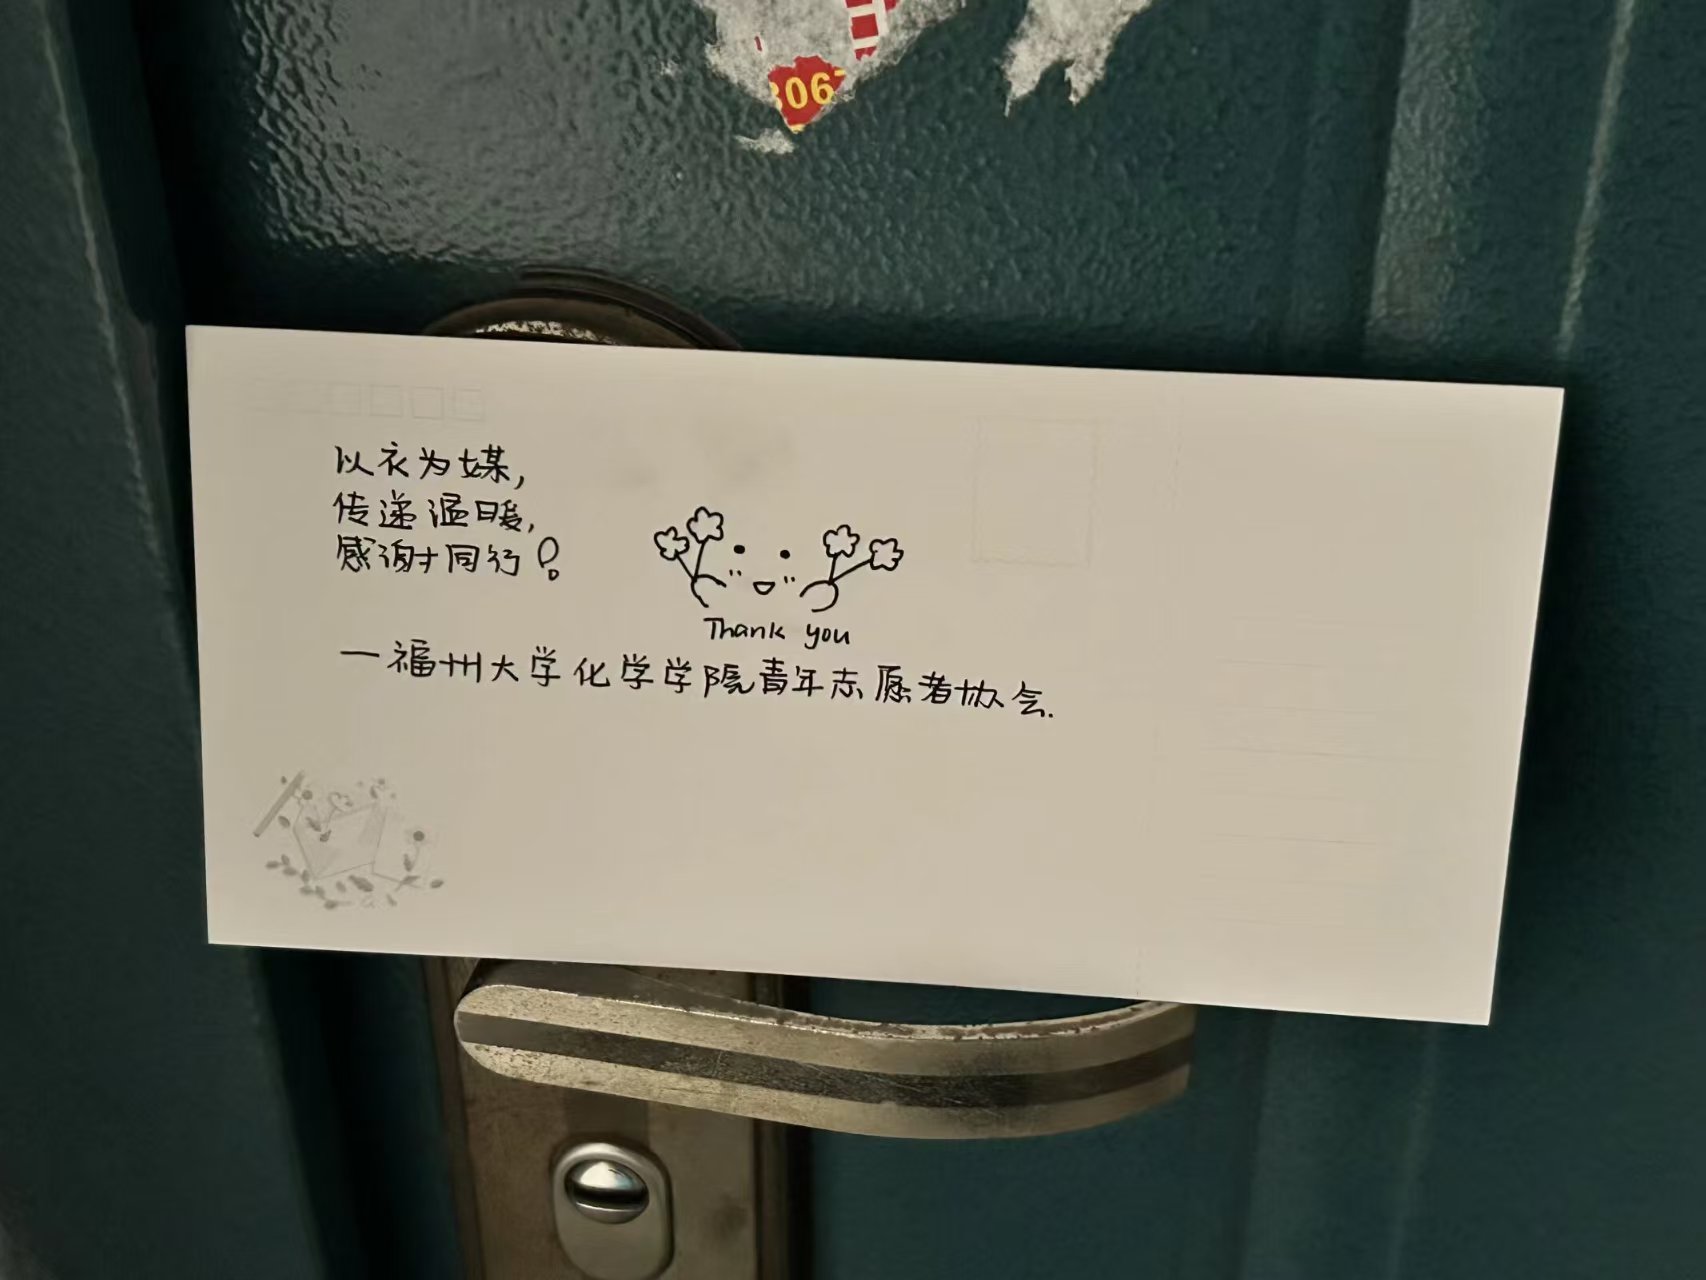 306
以衣为媒,
传递温暖,
感谢同行!
Thank you
一福州大学化学学院青年志愿者协会.